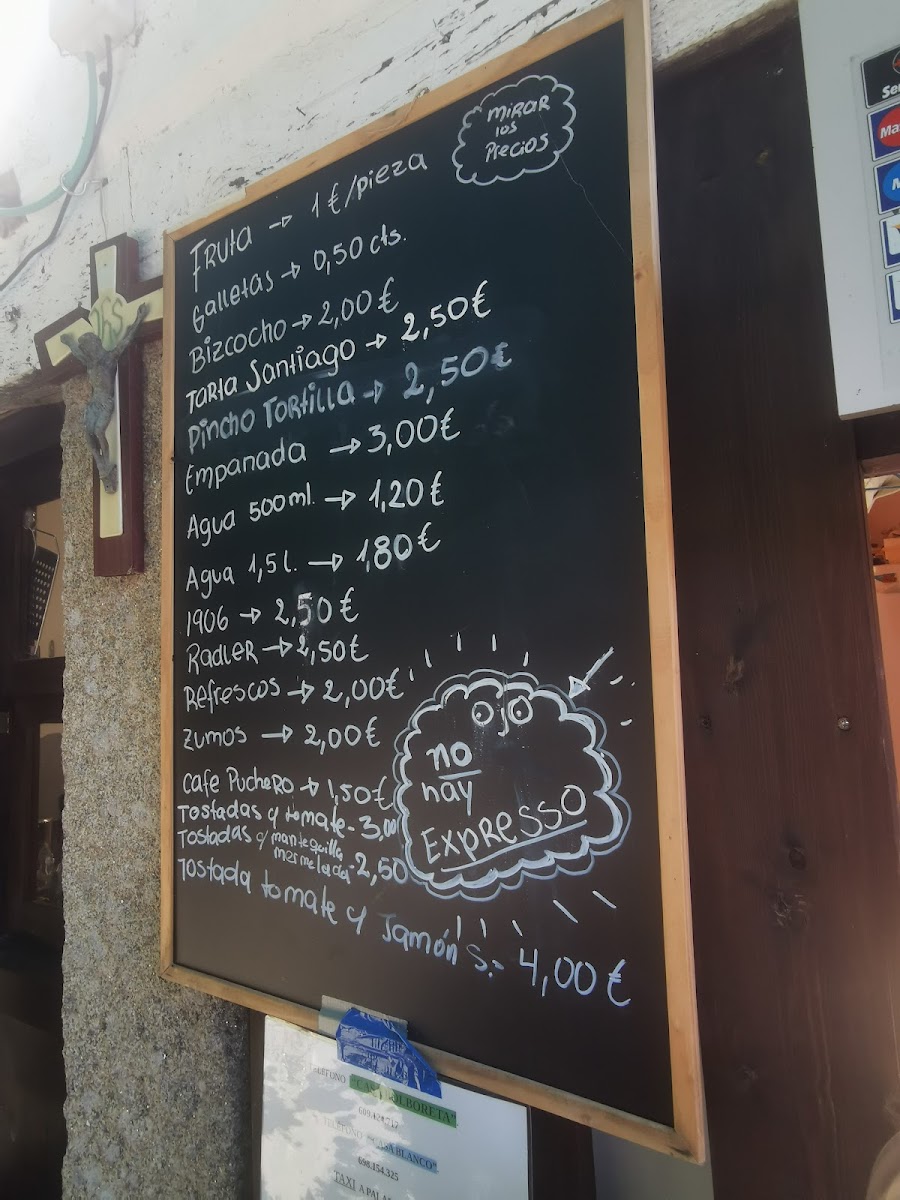 MIRAR
los
Precios
Fruta → 1€/pieza
Galletas → 0,50 cts.
Bizcocho → 2,00€
Tarta Santiago → 2,50€
Pincho Tortilla → 2,50€
Empanada → 3,00€
Agua 500ml. → 1,20€
Agua 1,5l. → 1,80€
1906 → 2,50€
Radler → 2,50€
Refrescos → 2,00€
Zumos → 2,00€
Cafe Puchero → 1,50€
Tostadas y tomate - 3,00
Tostadas c/ mantequilla
mermelada - 2,50
Tostada tomate y Jamón S.- 4,00€
Ojo
no
hay
Expresso
698.154.325
"CASA BLANCO"